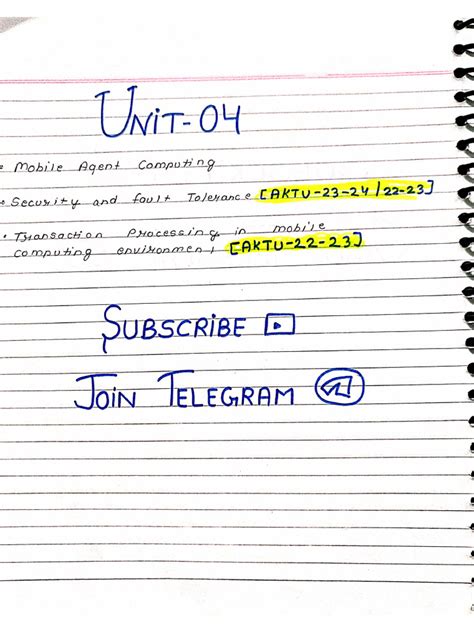 UNIT-04
• Mobile Agent Computing
• Security and foult Tolerance [AKTU-23-24/22-23]
• Transaction Processing in mobile
computing environment [AKTU-22-23]
SUBSCRIBE
JOIN TELEGRAM